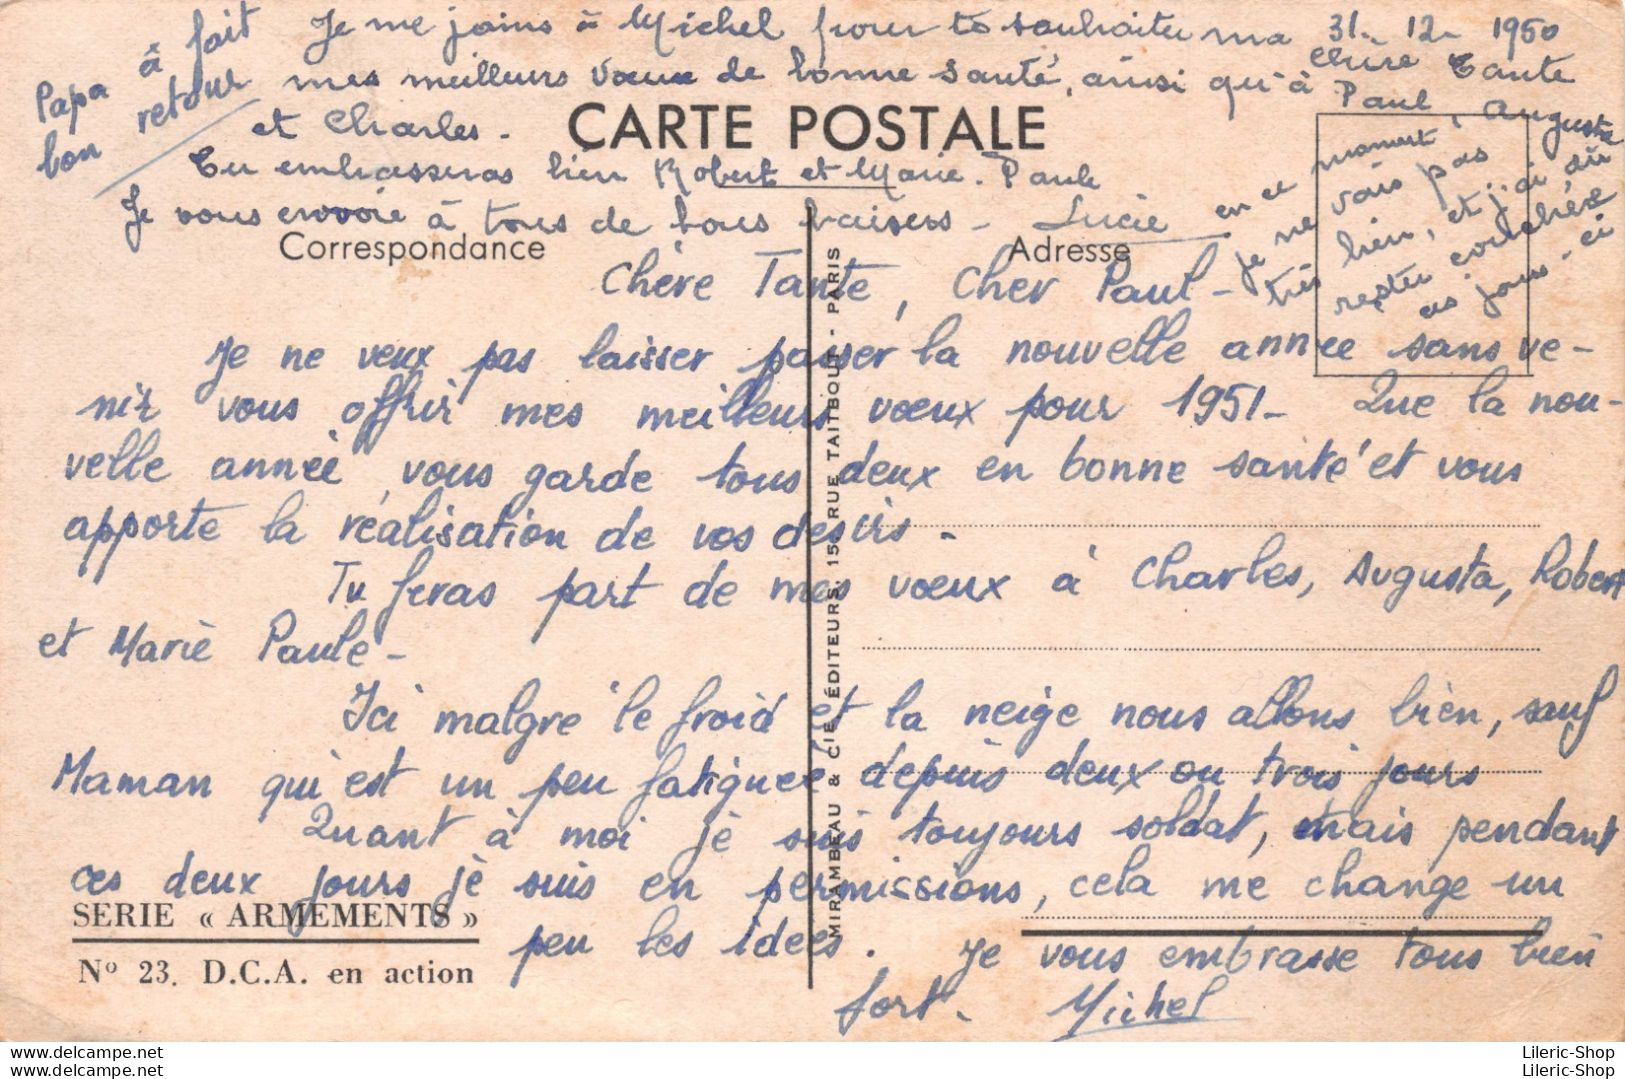 31. 12. 1950
Je me joins à Michel pour te souhaiter ma chère Tante
mes meilleurs vœux de bonne santé, ainsi qu'à Paul, Augusta
et Charles.
Tu embrasseras bien Robert et Marie. Paule
Je vous envoie à tous de bons baisers - Lucie
en ce moment,
je ne vais pas
très bien, et j'ai dû
rester couchée
ces jours-ci
Papa à fait
bon retour
CARTE POSTALE
Correspondance
Adresse
Chère Tante, Cher Paul -
Je ne veux pas laisser passer la nouvelle année sans ve-
nir vous offrir mes meilleurs vœux pour 1951 - Que la nou-
velle année vous garde tous deux en bonne santé et vous
apporte la réalisation de vos desirs -
Tu feras part de mes vœux à Charles, Augusta, Robert
et Marie Paule -
Ici malgré le froid et la neige nous allons bien, sauf
Maman qui est un peu fatiguée depuis deux ou trois jours
Quant à moi je suis toujours soldat, mais pendant
ces deux jours je suis en permissions, cela me change un
peu les idées. Je vous embrasse tous bien
fort. Michel
MIRAMBEAU & CIE, ÉDITEURS, 15, RUE TAITBOUT - PARIS
SERIE « ARMEMENTS »
No 23. D.C.A. en action
delcampe.net
delcampe.net
Lileric-Shop
Lileric-Shop